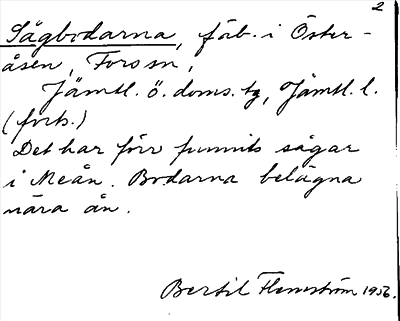 2
Sågbodarna, fäb. i Öster-
åsen, Fors sn,
Jämtl. ö. doms. tg, Jämtl. l.
(forts.)
Det har förr funnits sågar
i Meån. Bodarna belägna
nära ån.
Bertil Flemström 1956.